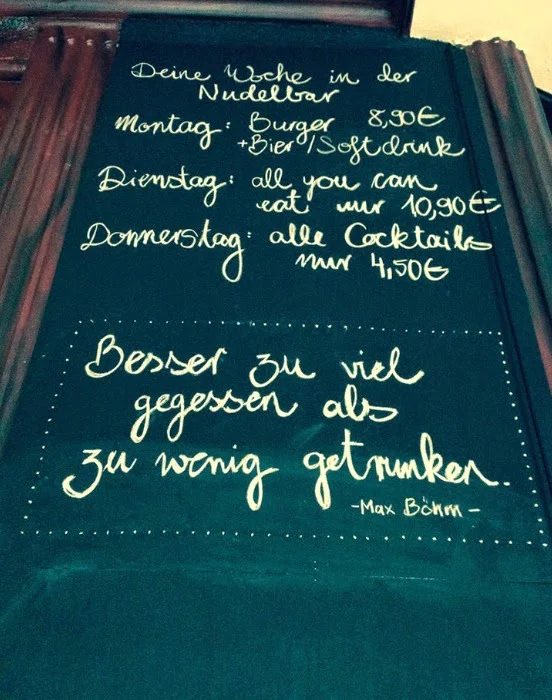 Deine Woche in der
Nudelbar
Montag: Burger 8,90€
+Bier/Softdrink
Dienstag: all you can
eat nur 10,90€
Donnerstag: alle Cocktails
nur 4,50€
Besser zu viel
gegessen als
zu wenig getrunken.
-Max Böhm-